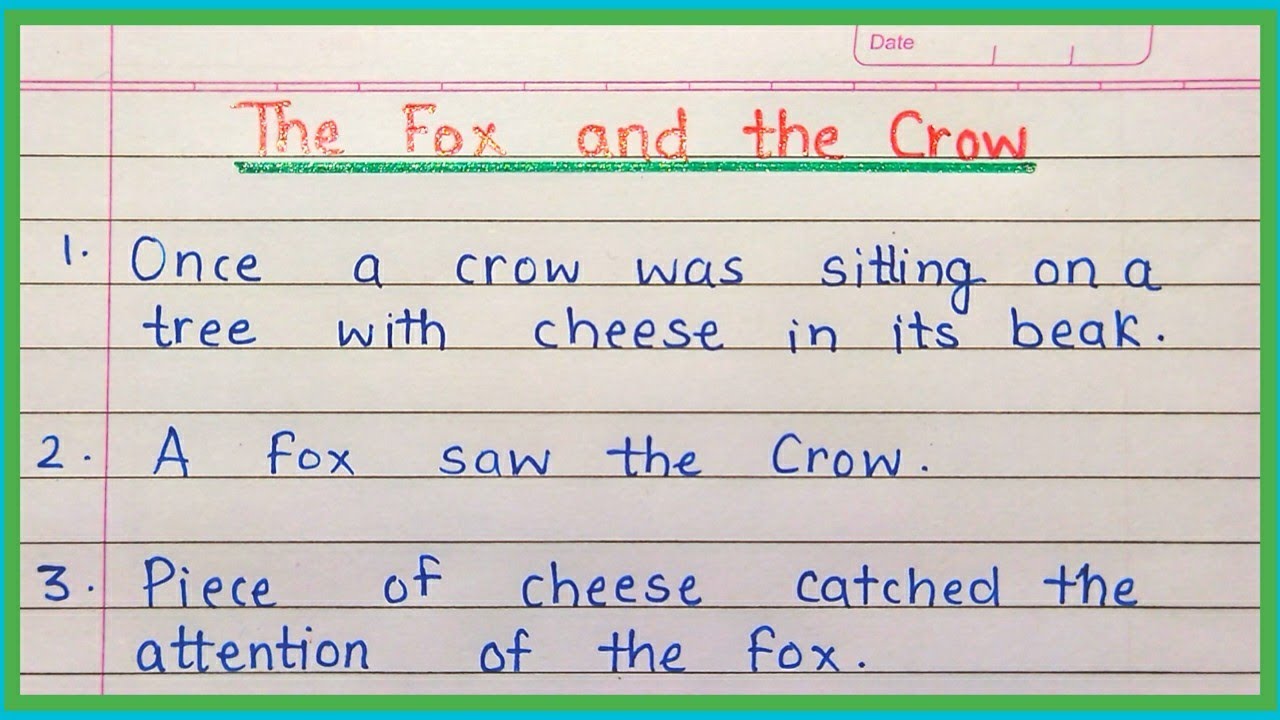 Date
The Fox and the Crow
1. Once a crow was sitting on a
tree with cheese in its beak.
2. A fox saw the Crow.
3. Piece of cheese catched the
attention of the fox.